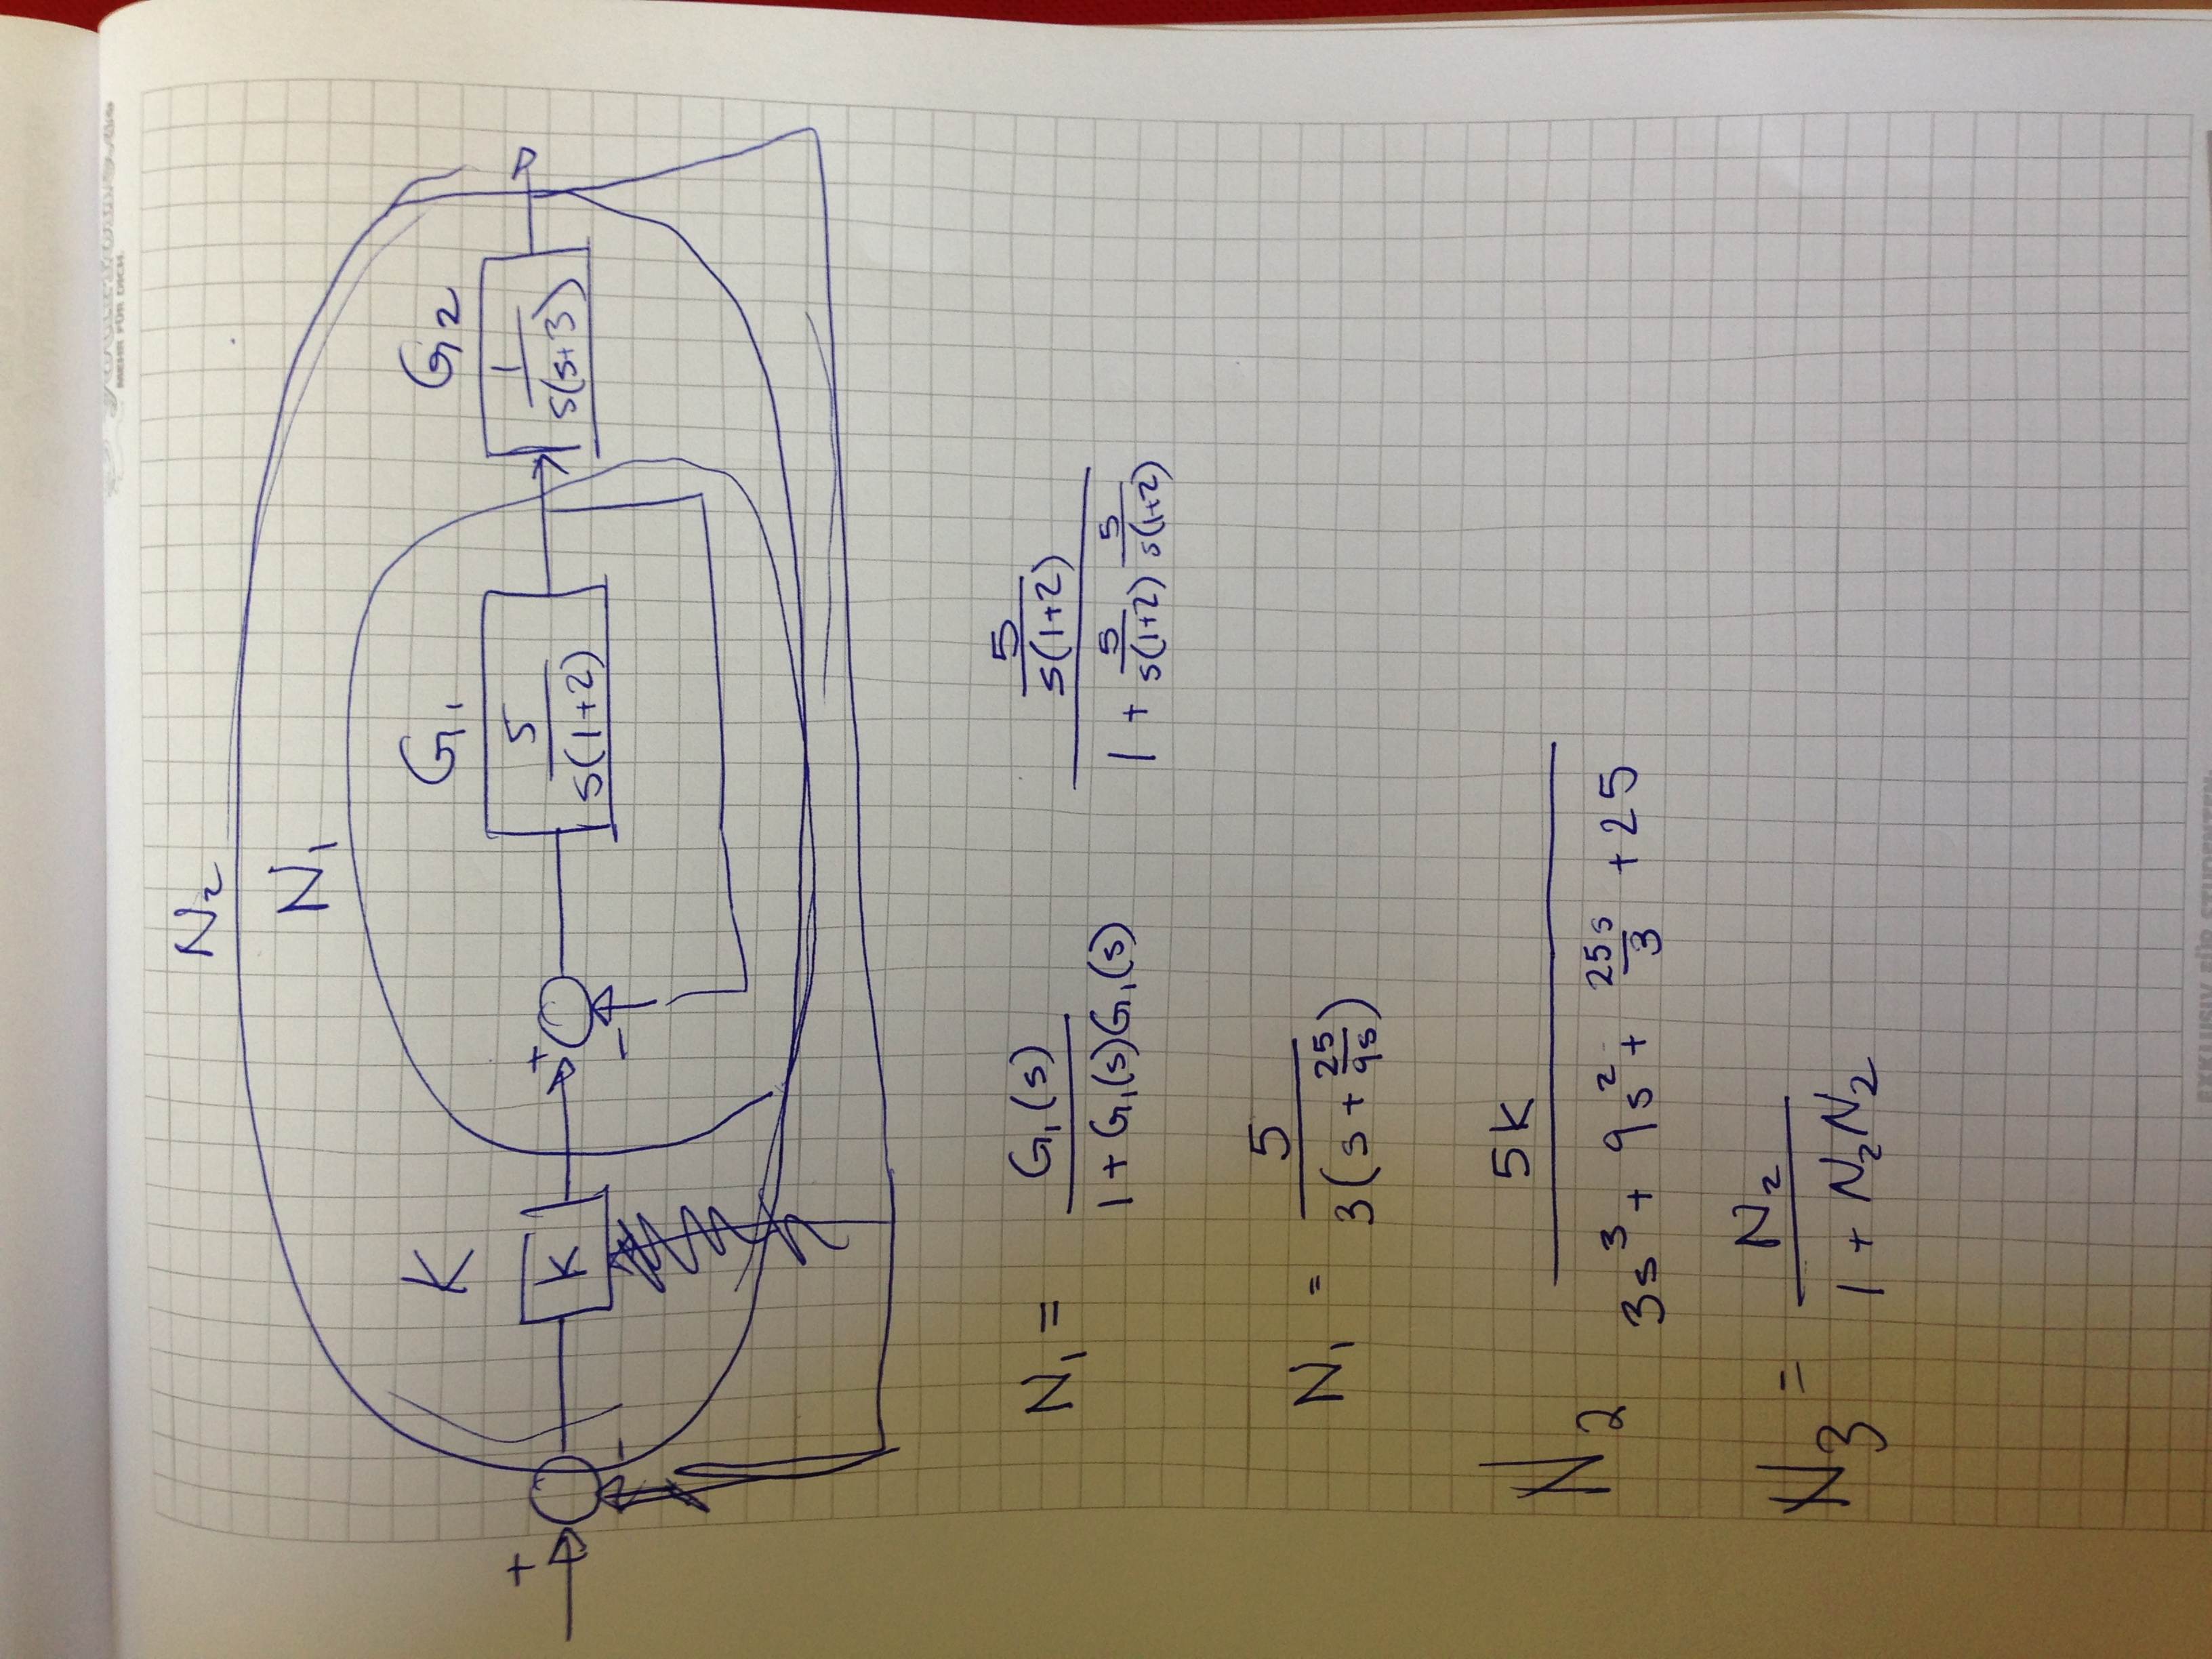 MEHR FÜR DICH.
N₂
N₁
K G₁ G₂
+ k + 5/(s(1+2)) 1/(s(s+3))
- -
N₁ = G₁(s)/(1 + G₁(s)G₁(s)) (5/(s(1+2)))/(1 + 5/(s(1+2)) 5/(s(1+2)))
N₁ = 5/(3(s + 25/9s))
N₂ 5k/(3s³ + 9s² + 25s/3 + 25)
N₃ = N₂/(1 + N₂N₂)
EXKLUSIV FÜR STUDENTEN: